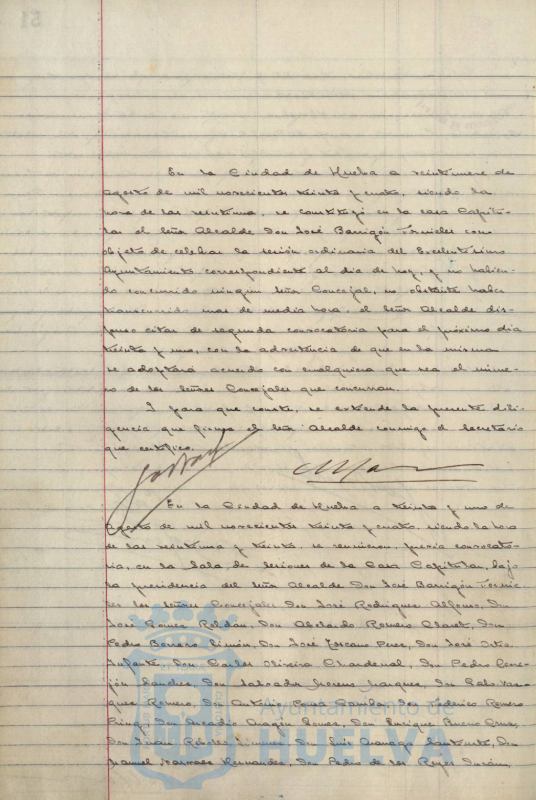 En la Ciudad de Huelva a veintinueve de
agosto de mil novecientos treinta y cuatro, siendo la
hora de las veintiuna, se constituyó en la casa Capitu-
lar el Señor Alcalde Don José Barrigón Fornieles con
objeto de celebrar la sesión ordinaria del Excelentísimo
Ayuntamiento correspondiente al día de hoy, y no habien-
do concurrido ningún Señor Concejal, no obstante haber
transcurrido mas de media hora, el Señor Alcalde dis-
puso citar de segunda convocatoria para el próximo día
treinta y uno, con la advertencia de que en la misma
se adoptará acuerdo con cualquiera que sea el núme-
ro de los Señores Concejales que concurran.
Y para que conste, se extiende la presente dili-
gencia que firma el Señor Alcalde conmigo el Secretario
que certifico.
En la Ciudad de Huelva a treinta y uno de
agosto de mil novecientos treinta y cuatro, siendo la hora
de las veintiuna y treinta, se reunieron, previa convocato-
ria, en la Sala de Sesiones de la Casa Capitular, bajo
la presidencia del Señor Alcalde Don José Barrigón Fornie-
les los Señores Concejales Don José Rodríguez Alfonso, Don
José Gómez Roldán, Don Abelardo Romero Claret, Don
Pedro Borrero Limón, Don José Toscano Pérez, Don José Ortiz
Infante, Don Carlos Oliveira Chardenal, Don Pedro Cere-
jón Sánchez, Don Salvador Moreno Márquez, Don Pablo Vaz-
quez Romero, Don Antonio Pousa Camba, Don Federico Romero
Don Arcadio Aragón Gómez, Don Enrique Bueno Cruz,
Don Juan Rebollo Jiménez, Don Luis
Manuel Narváez Hernández, Don Pedro de los Reyes Durán,
Ayuntamiento de
HUELVA